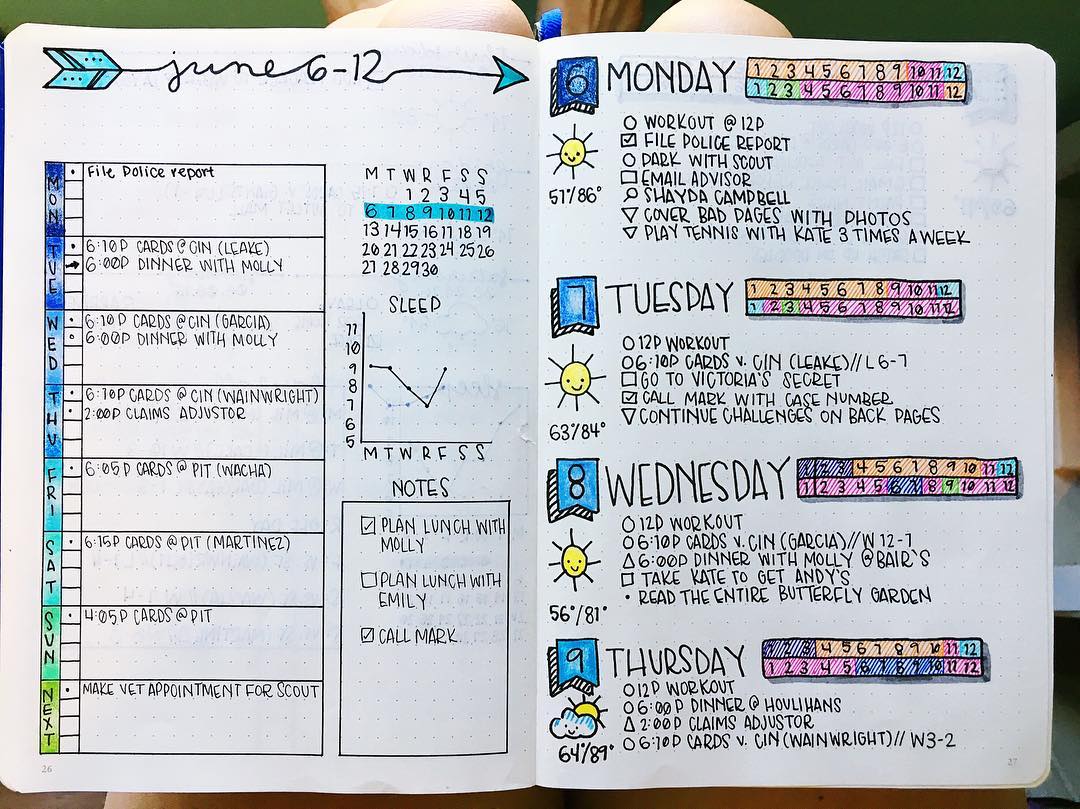 june 6-12
MON
• File Police report
TUE
• 6:10P CARDS @ CIN (LEAKE)
→ 6:00P DINNER WITH MOLLY
WED
• 6:10P CARDS @ CIN (GARCIA)
○ 6:00P DINNER WITH MOLLY
THU
• 6:10P CARDS @ CIN (WAINWRIGHT)
• 2:00P CLAIMS ADJUSTOR
FRI
• 6:05P CARDS @ PIT (WACHA)
SAT
• 6:15P CARDS @ PIT (MARTINEZ)
SUN
• 4:05P CARDS @ PIT
NEXT
• MAKE VET APPOINTMENT FOR SCOUT
26
M T W R F S S
1 2 3 4 5
6 7 8 9 10 11 12
13 14 15 16 17 18 19
20 21 22 23 24 25 26
27 28 29 30
SLEEP
11
10
9
8
7
6
5
M T W R F S S
NOTES
☑ PLAN LUNCH WITH
MOLLY
☐ PLAN LUNCH WITH
EMILY
☑ CALL MARK
6 MONDAY
1 2 3 4 5 6 7 8 9 10 11 12
1 2 3 4 5 6 7 8 9 10 11 12
57°/86°
○ WORKOUT @ 12P
☑ FILE POLICE REPORT
○ PARK WITH SCOUT
☐ EMAIL ADVISOR
SHAYDA CAMPBELL
▽ COVER BAD PAGES WITH PHOTOS
▽ PLAY TENNIS WITH KATE 3 TIMES A WEEK
7 TUESDAY
1 2 3 4 5 6 7 8 9 10 11 12
1 2 3 4 5 6 7 8 9 10 11 12
63°/84°
○ 12P WORKOUT
○ 6:10P CARDS V. CIN (LEAKE)// L 6-7
☐ GO TO VICTORIA'S SECRET
☑ CALL MARK WITH CASE NUMBER
▽ CONTINUE CHALLENGES ON BACK PAGES
8 WEDNESDAY
1 2 3 4 5 6 7 8 9 10 11 12
1 2 3 4 5 6 7 8 9 10 11 12
56°/81°
○ 12P WORKOUT
○ 6:10P CARDS V. CIN (GARCIA)// W 12-7
△ 6:00P DINNER WITH MOLLY @ BAIR'S
☐ TAKE KATE TO GET ANDY'S
• READ THE ENTIRE BUTTERFLY GARDEN
9 THURSDAY
1 2 3 4 5 6 7 8 9 10 11 12
1 2 3 4 5 6 7 8 9 10 11 12
64°/89°
○ 12P WORKOUT
○ 6:00P DINNER @ HOULIHANS
△ 2:00P CLAIMS ADJUSTOR
○ 6:10P CARDS V. CIN (WAINWRIGHT)// W3-2
27